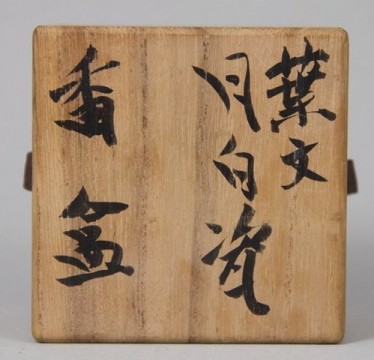 葉文
月白瓷
香盒